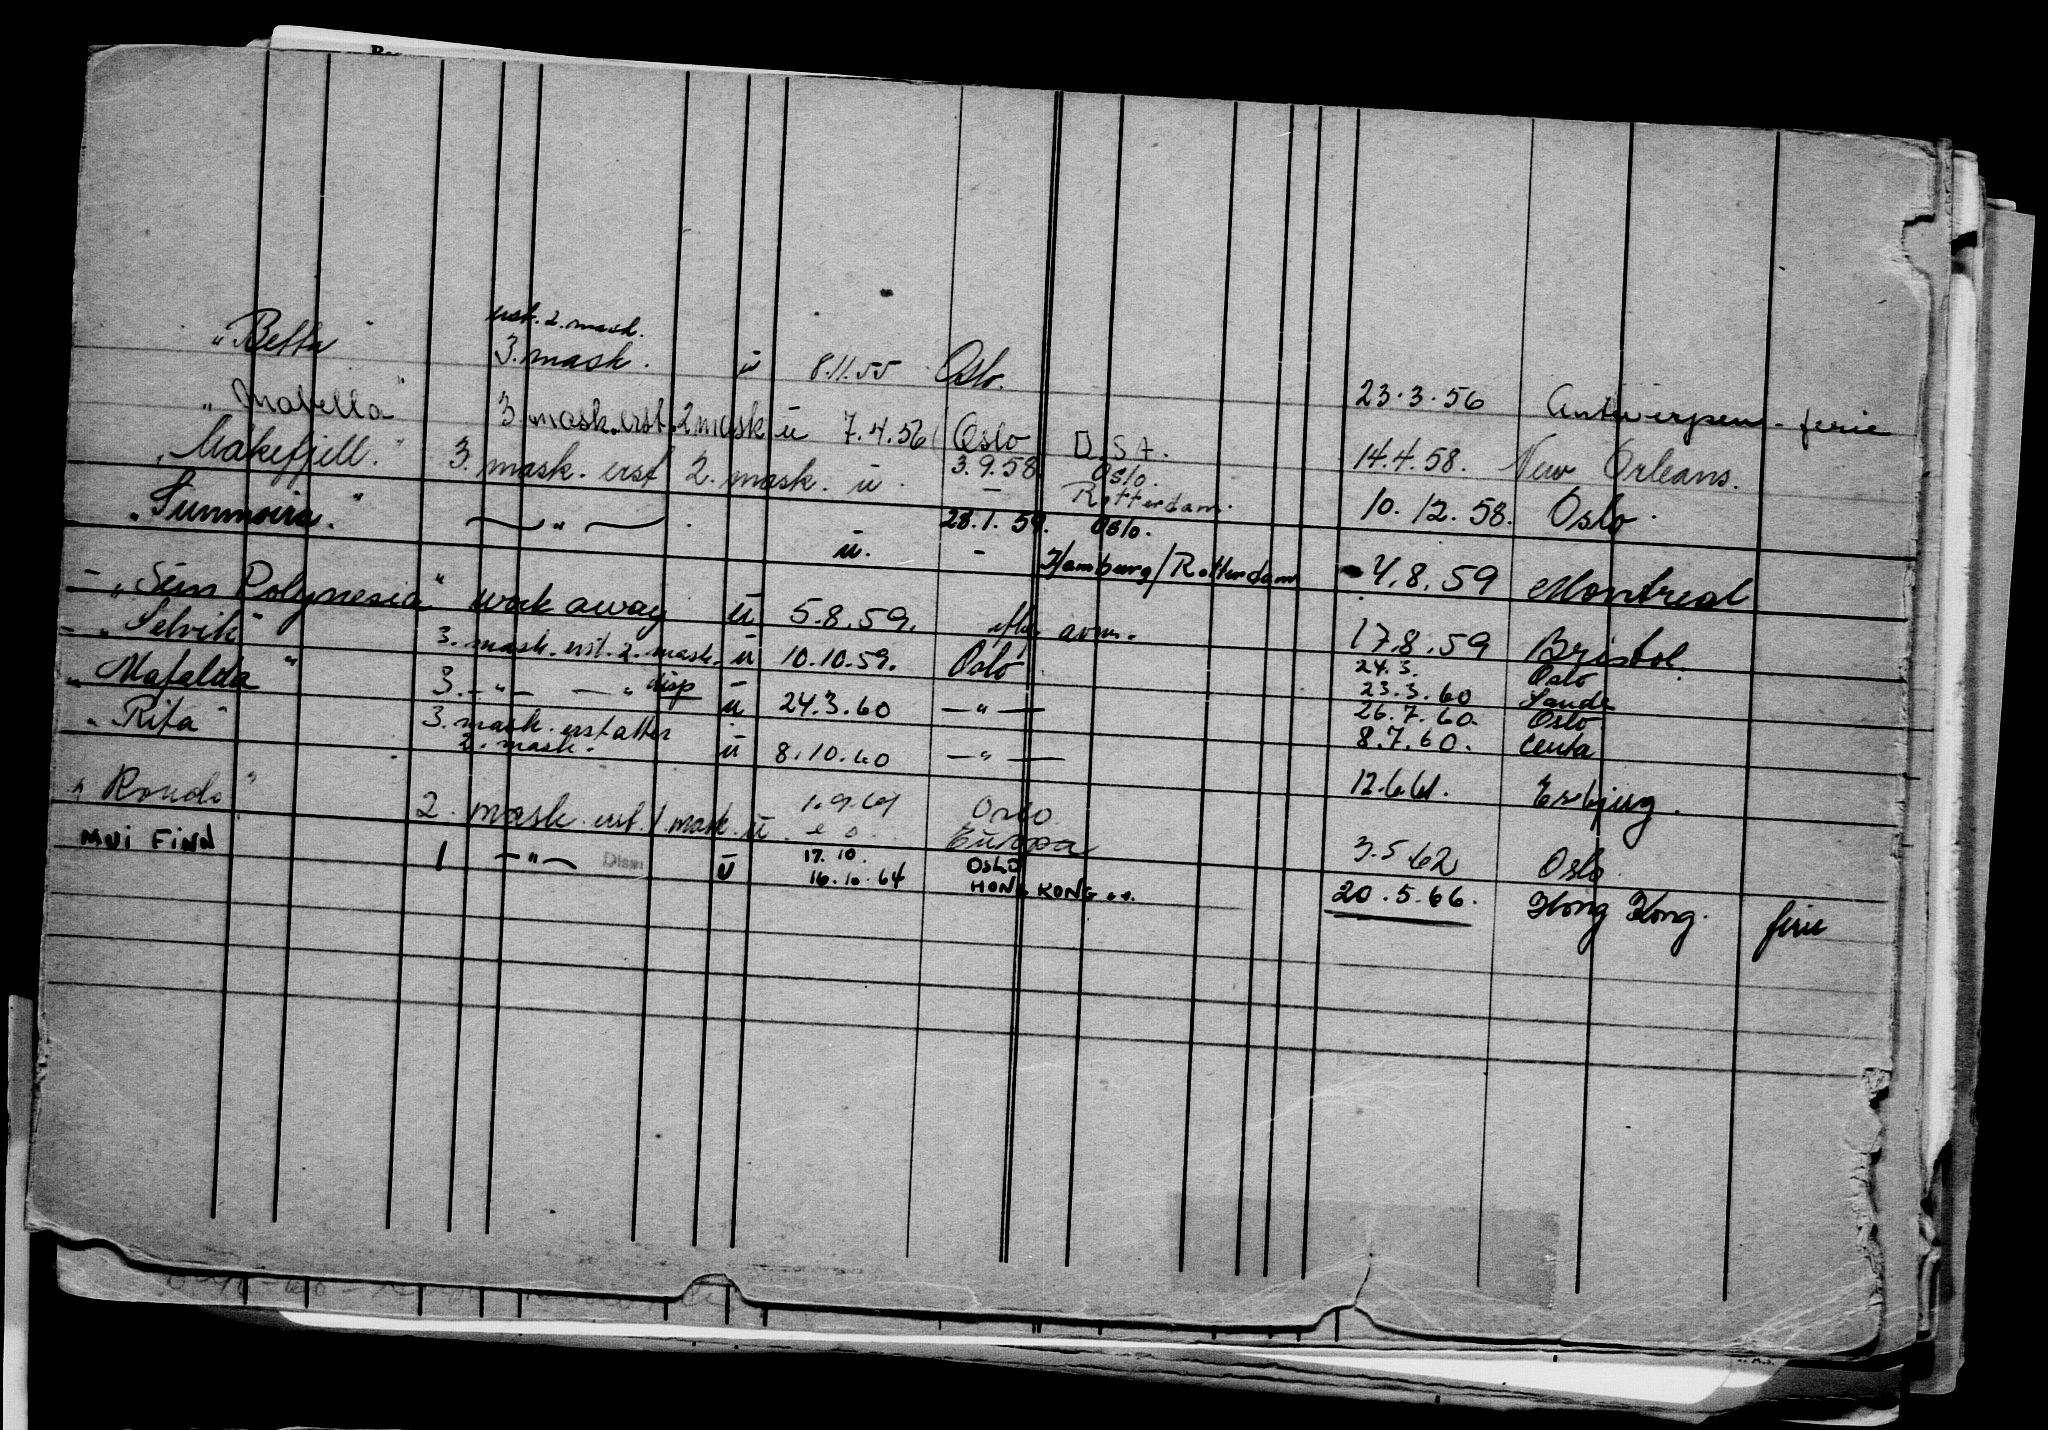 erst. 2. mask.
"Betta" 3. mask. u 8.11.55 Oslo. 23.3.56 Antwerpen - ferie
"Mabella" 3. mask. erst. 2 mask u 7.4.56 Oslo U.S.A. 14.4.58. New Orleans.
"Makefjell." 3. mask. erst 2. mask. u. 3.9.58. Oslo. Rotterdam. 10.12.58. Oslo
"Sunmoira." — " — 28.1.59. Oslo.
u. - Hamburg/Rotterdam 4.8.59 Montreal
- "Sun Polynesia" work away u 5.8.59. avm. 17.8.59 Bristol.
- "Selvik" 3. mask. erst. 2. mask. u 10.10.59. Oslo 24.3. Oslo
23.3.60 Sande
"Mafalda" 3. - " - — " disp u 24.3.60 — " — 26.7.60. Oslo
8.7.60. Ceuta
"Rita" 3. mask. erstatter
2. mask. u 8.10.60 — " — 12.6.61. Esbjerg.
"Rondo" 2. mask. erst. 1. mask. u Oslo
Europa 3.5.62 Oslo
MUI FINN 1 - " - Disp u 17.10. OSLO
16.10.64 HONG KONG 20.5.66. Hong Kong. ferie